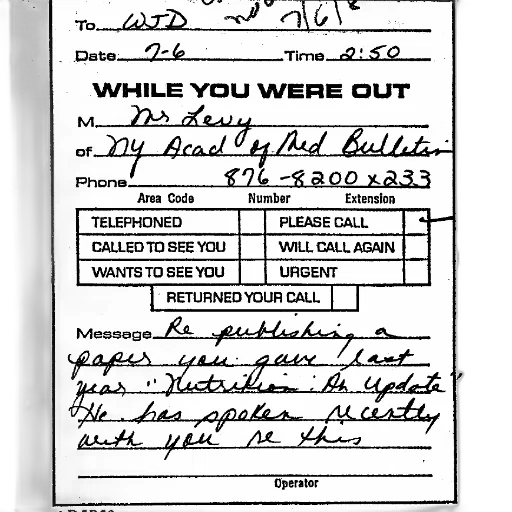 To WJD 7/6/8
Date 7-6 Time 2:50
WHILE YOU WERE OUT
M Mr Levy
of NY Acad of Med Bulletin
Phone 876-8200 x233
Area Code Number Extension
TELEPHONED PLEASE CALL
CALLED TO SEE YOU WILL CALL AGAIN
WANTS TO SEE YOU URGENT
RETURNED YOUR CALL
Message Re publishing a
paper you gave last
year "Nutrition: An Update"
He has spoken recently
with you re this
Operator